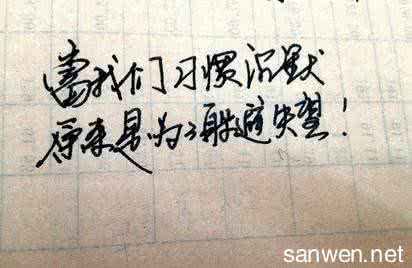 當我们习惯沉默
原来是为了躲避失望！
sanwen.net